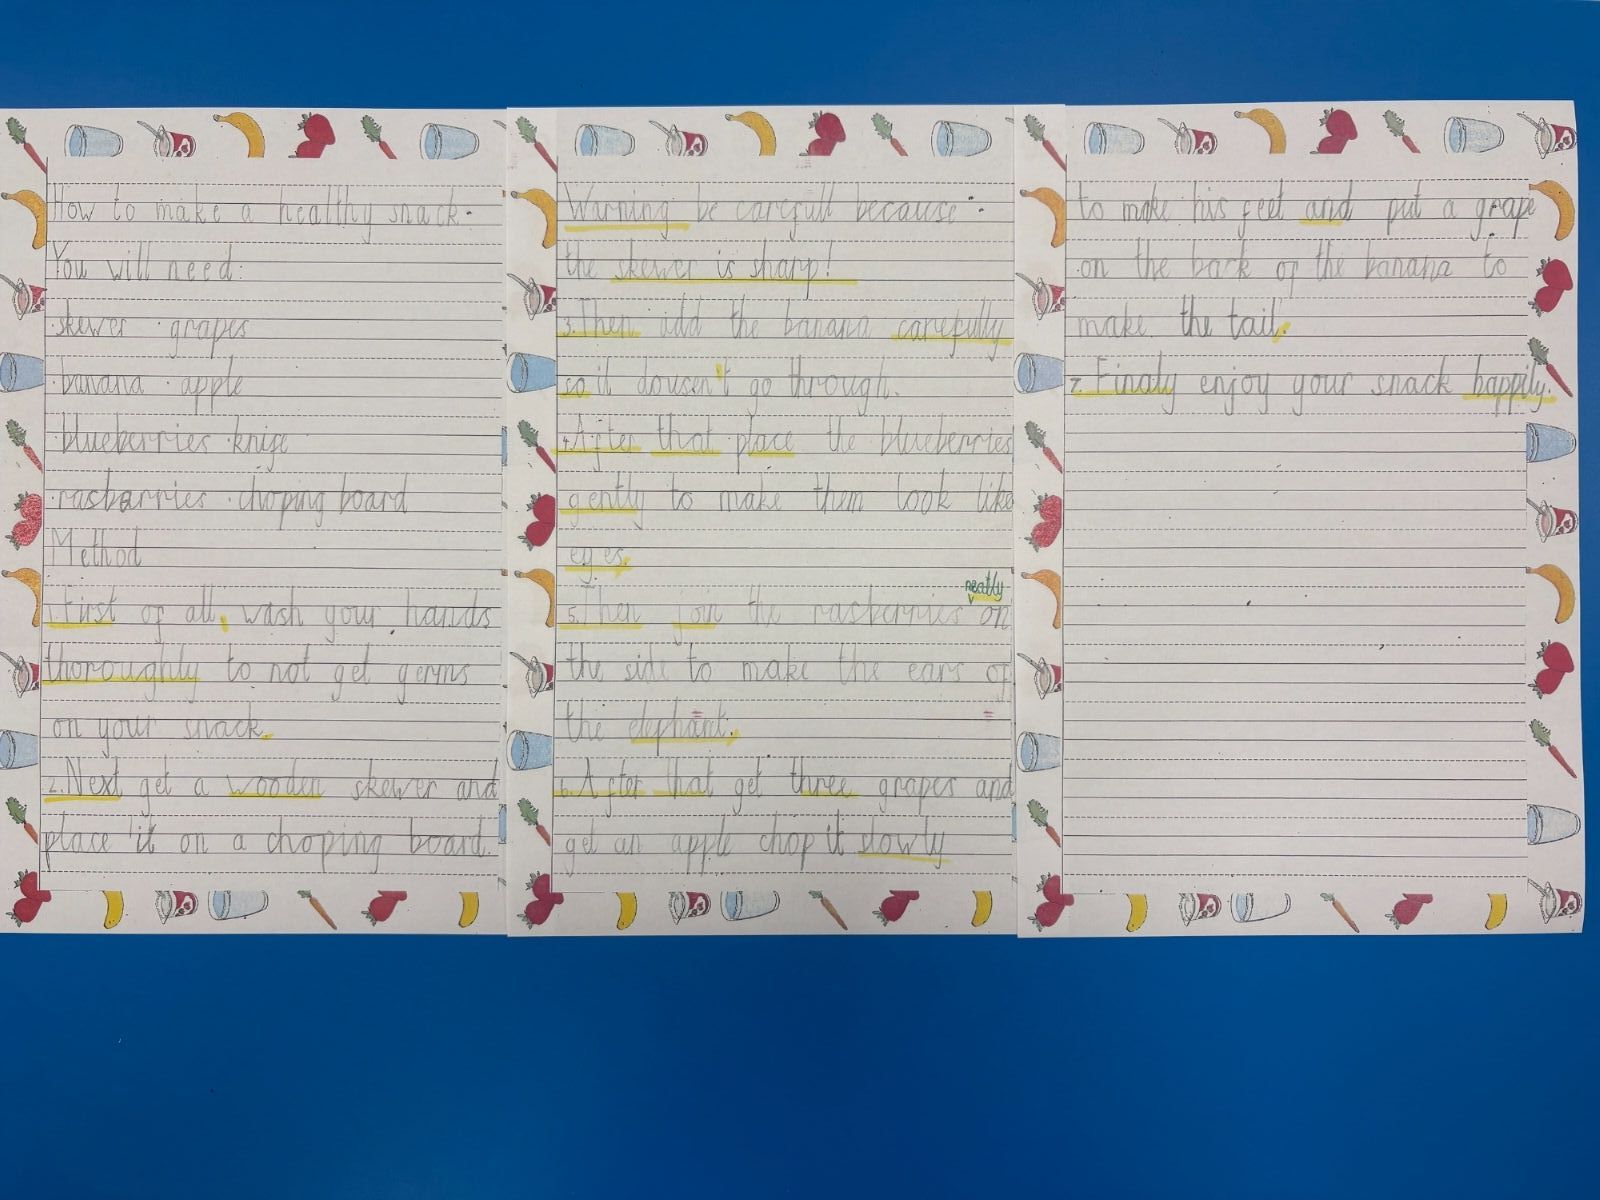 How to make a healthy snack.
You will need:
·skewer ·grapes
·banana ·apple
·blueberries ·knife
·rasbarries ·choping board
Method
1.First of all, wash your hands
thoroughly to not get germs
on your snack.
2.Next get a wooden skewer and
place it on a choping board.
Warning be carefull because
the skewer is sharp!
3.Then add the banana carefully
so it dousen't go through.
4.After that place the blueberries
gently to make them look like
eyes.
neatly
5.Then join the rasberries on
the side to make the ears of
the elephant.
6.After that get three grapes and
get an apple chop it slowly
to make his feet and put a grape
on the back of the banana to
make the tail.
7.Finaly enjoy your snack happily.